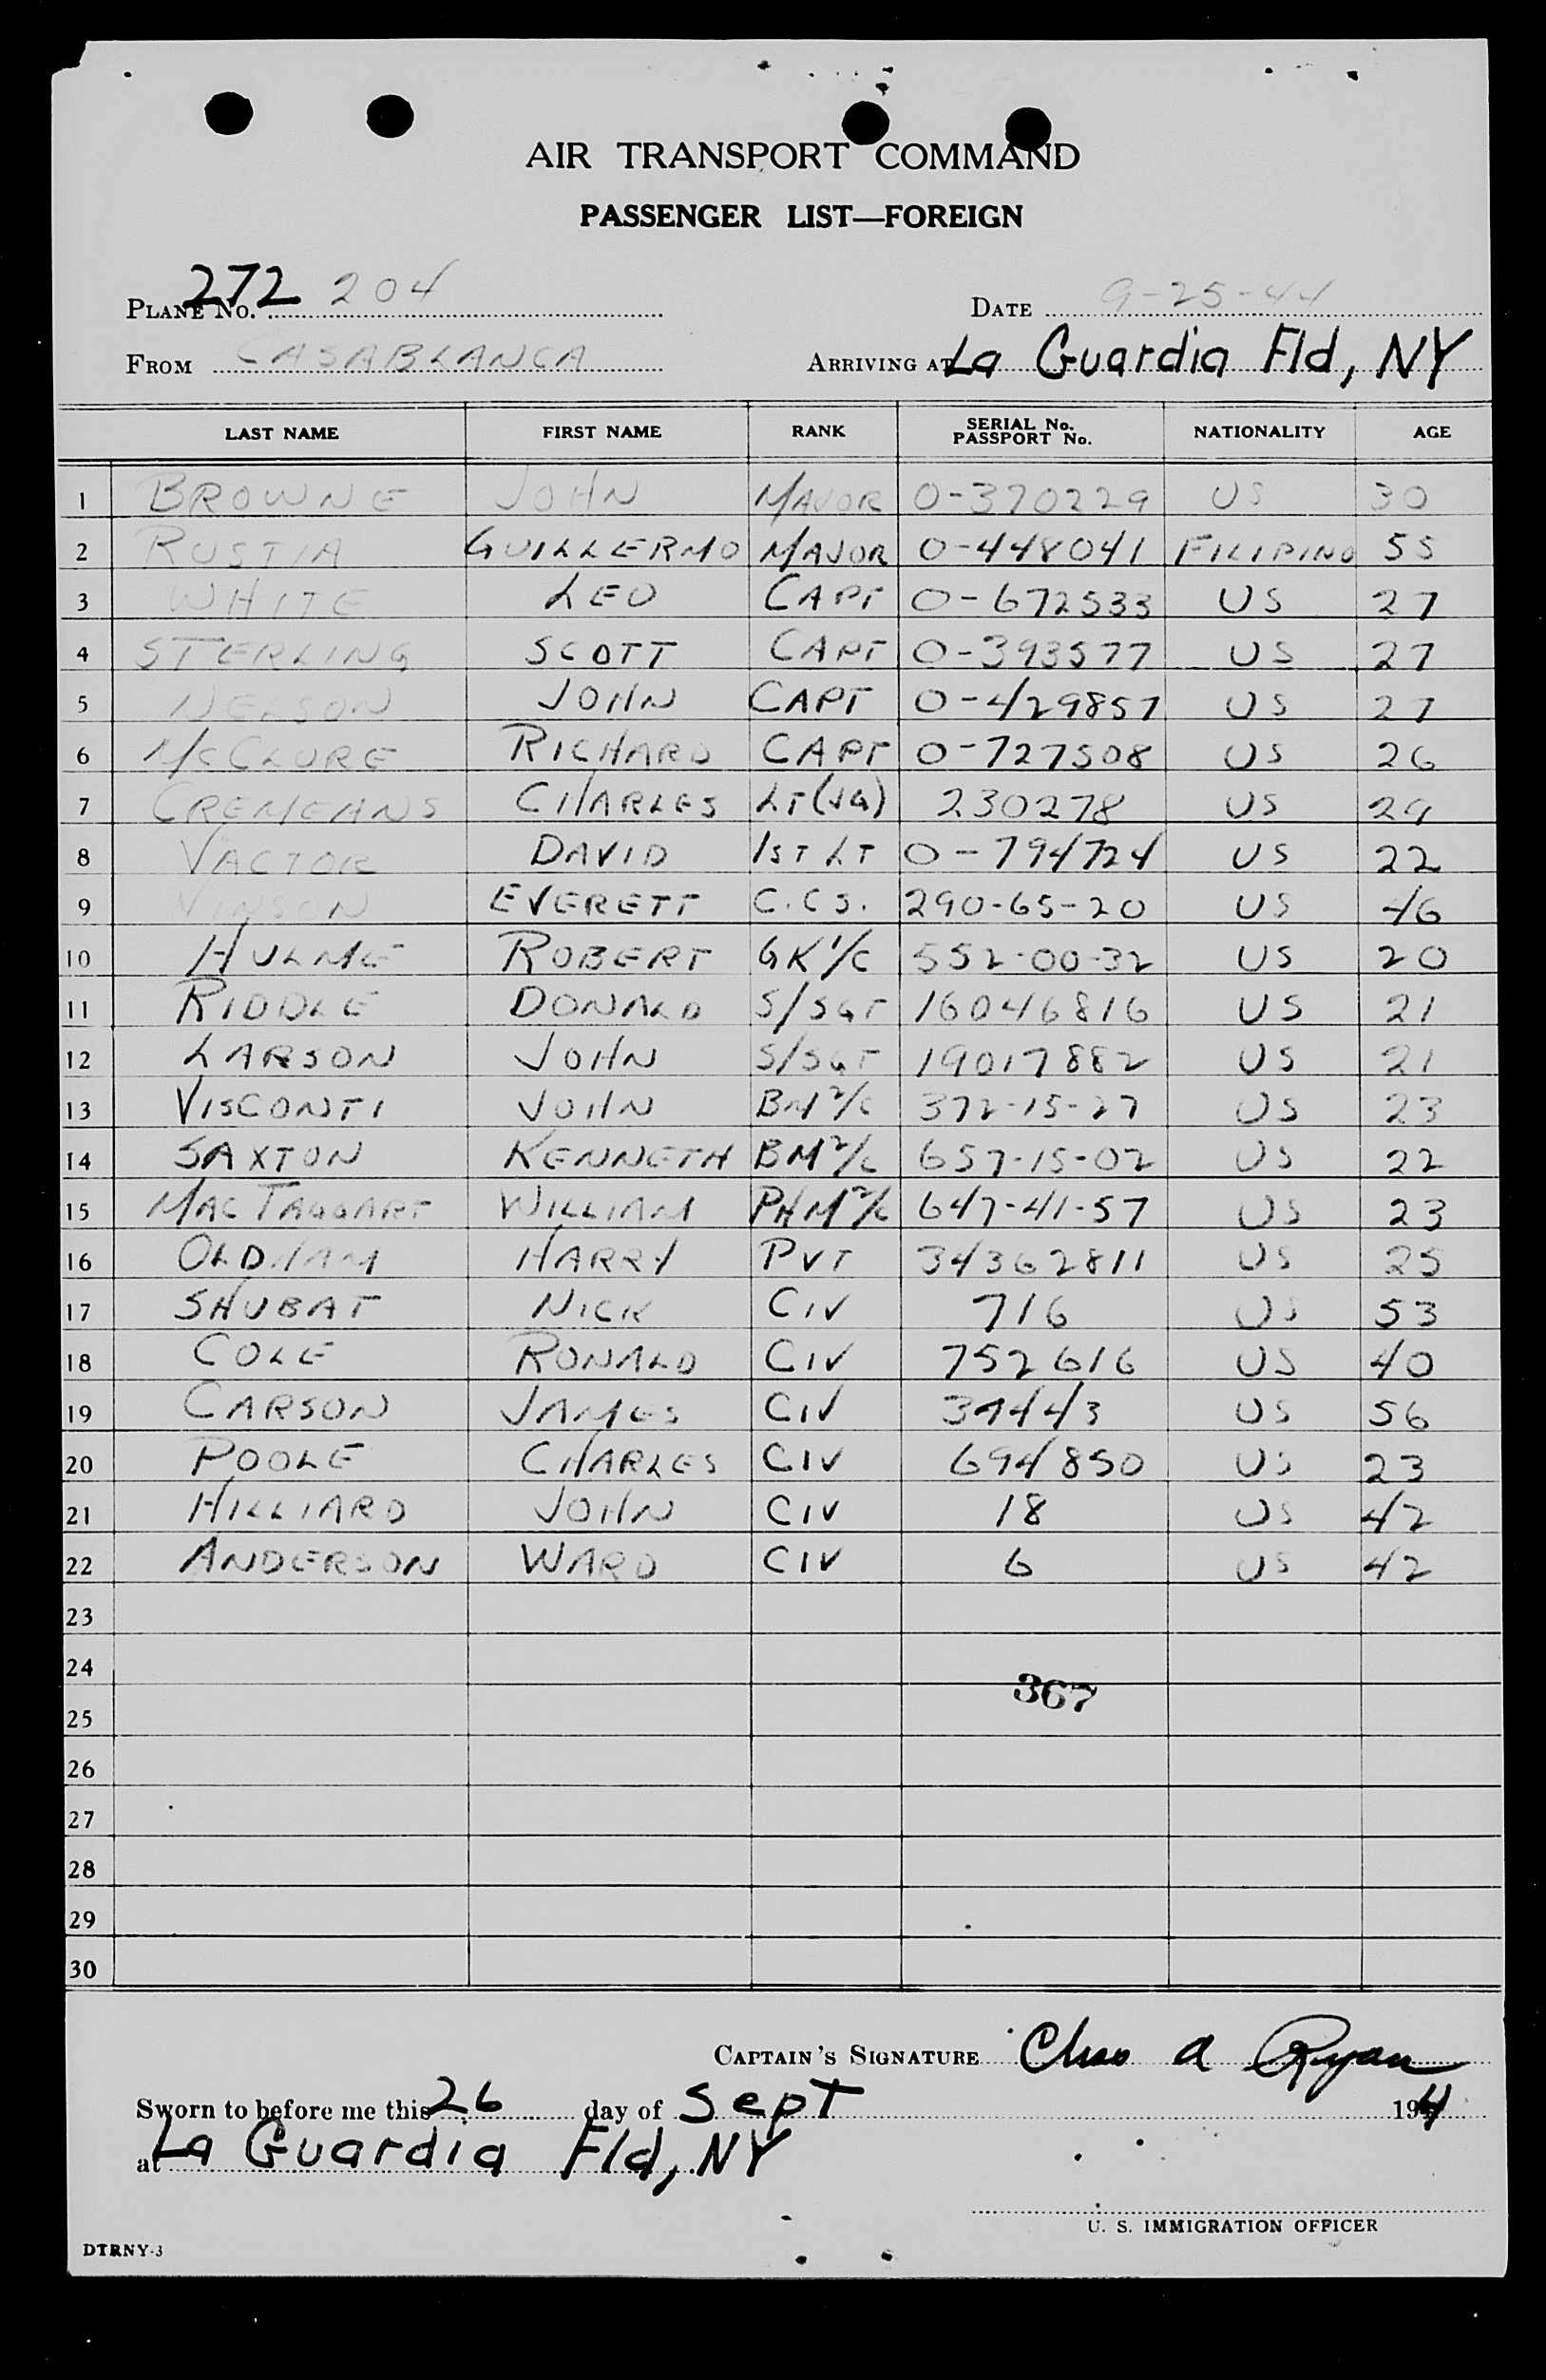 AIR TRANSPORT COMMAND
PASSENGER LIST—FOREIGN
PLANE No. 272 204 DATE 9-25-44
FROM CASABLANCA ARRIVING AT La Guardia Fld, NY
LAST NAME FIRST NAME RANK SERIAL No. PASSPORT No. NATIONALITY AGE
1 BROWNE JOHN MAJOR O-370229 US 30
2 RUSTIA GUILLERMO MAJOR O-448041 FILIPINO 55
3 WHITE LEO CAPT O-672533 US 27
4 STERLING SCOTT CAPT O-393577 US 27
5 NELSON JOHN CAPT O-429857 US 27
6 McCLURE RICHARD CAPT O-727508 US 26
7 CREMEANS CHARLES LT(JG) 230278 US 29
8 VACTOR DAVID 1ST LT O-794724 US 22
9 VINSON EVERETT C.C.S. 290-65-20 US 46
10 HULME ROBERT GK 1/C 552-00-32 US 20
11 RIDDLE DONALD S/SGT 16046816 US 21
12 LARSON JOHN S/SGT 19017882 US 21
13 VISCONTI JOHN BM 2/C 372-15-27 US 23
14 SAXTON KENNETH BM 2/C 657-15-02 US 22
15 MACTAGGART WILLIAM PHM 2/C 647-41-57 US 23
16 OLDHAM HARRY PVT 34362811 US 25
17 SHUBAT NICK CIV 716 US 53
18 COLE RONALD CIV 752616 US 40
19 CARSON JAMES CIV US 56
20 POOLE CHARLES CIV 694850 US 23
21 HILLIARD JOHN CIV 18 US 42
22 ANDERSON WARD CIV 6 US 42
23
24
367
25
26
27
28
29
30
CAPTAIN'S SIGNATURE Chas A Ryan
Sworn to before me this 26 day of Sept 194
at La Guardia Fld, NY
U. S. IMMIGRATION OFFICER
DTRNY-3